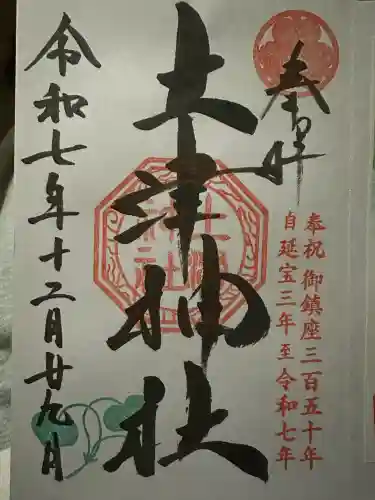 奉拝
奉祝 御鎮座三百五十年
自延宝三年至令和七年
土津神社
令和七年十二月廿九日